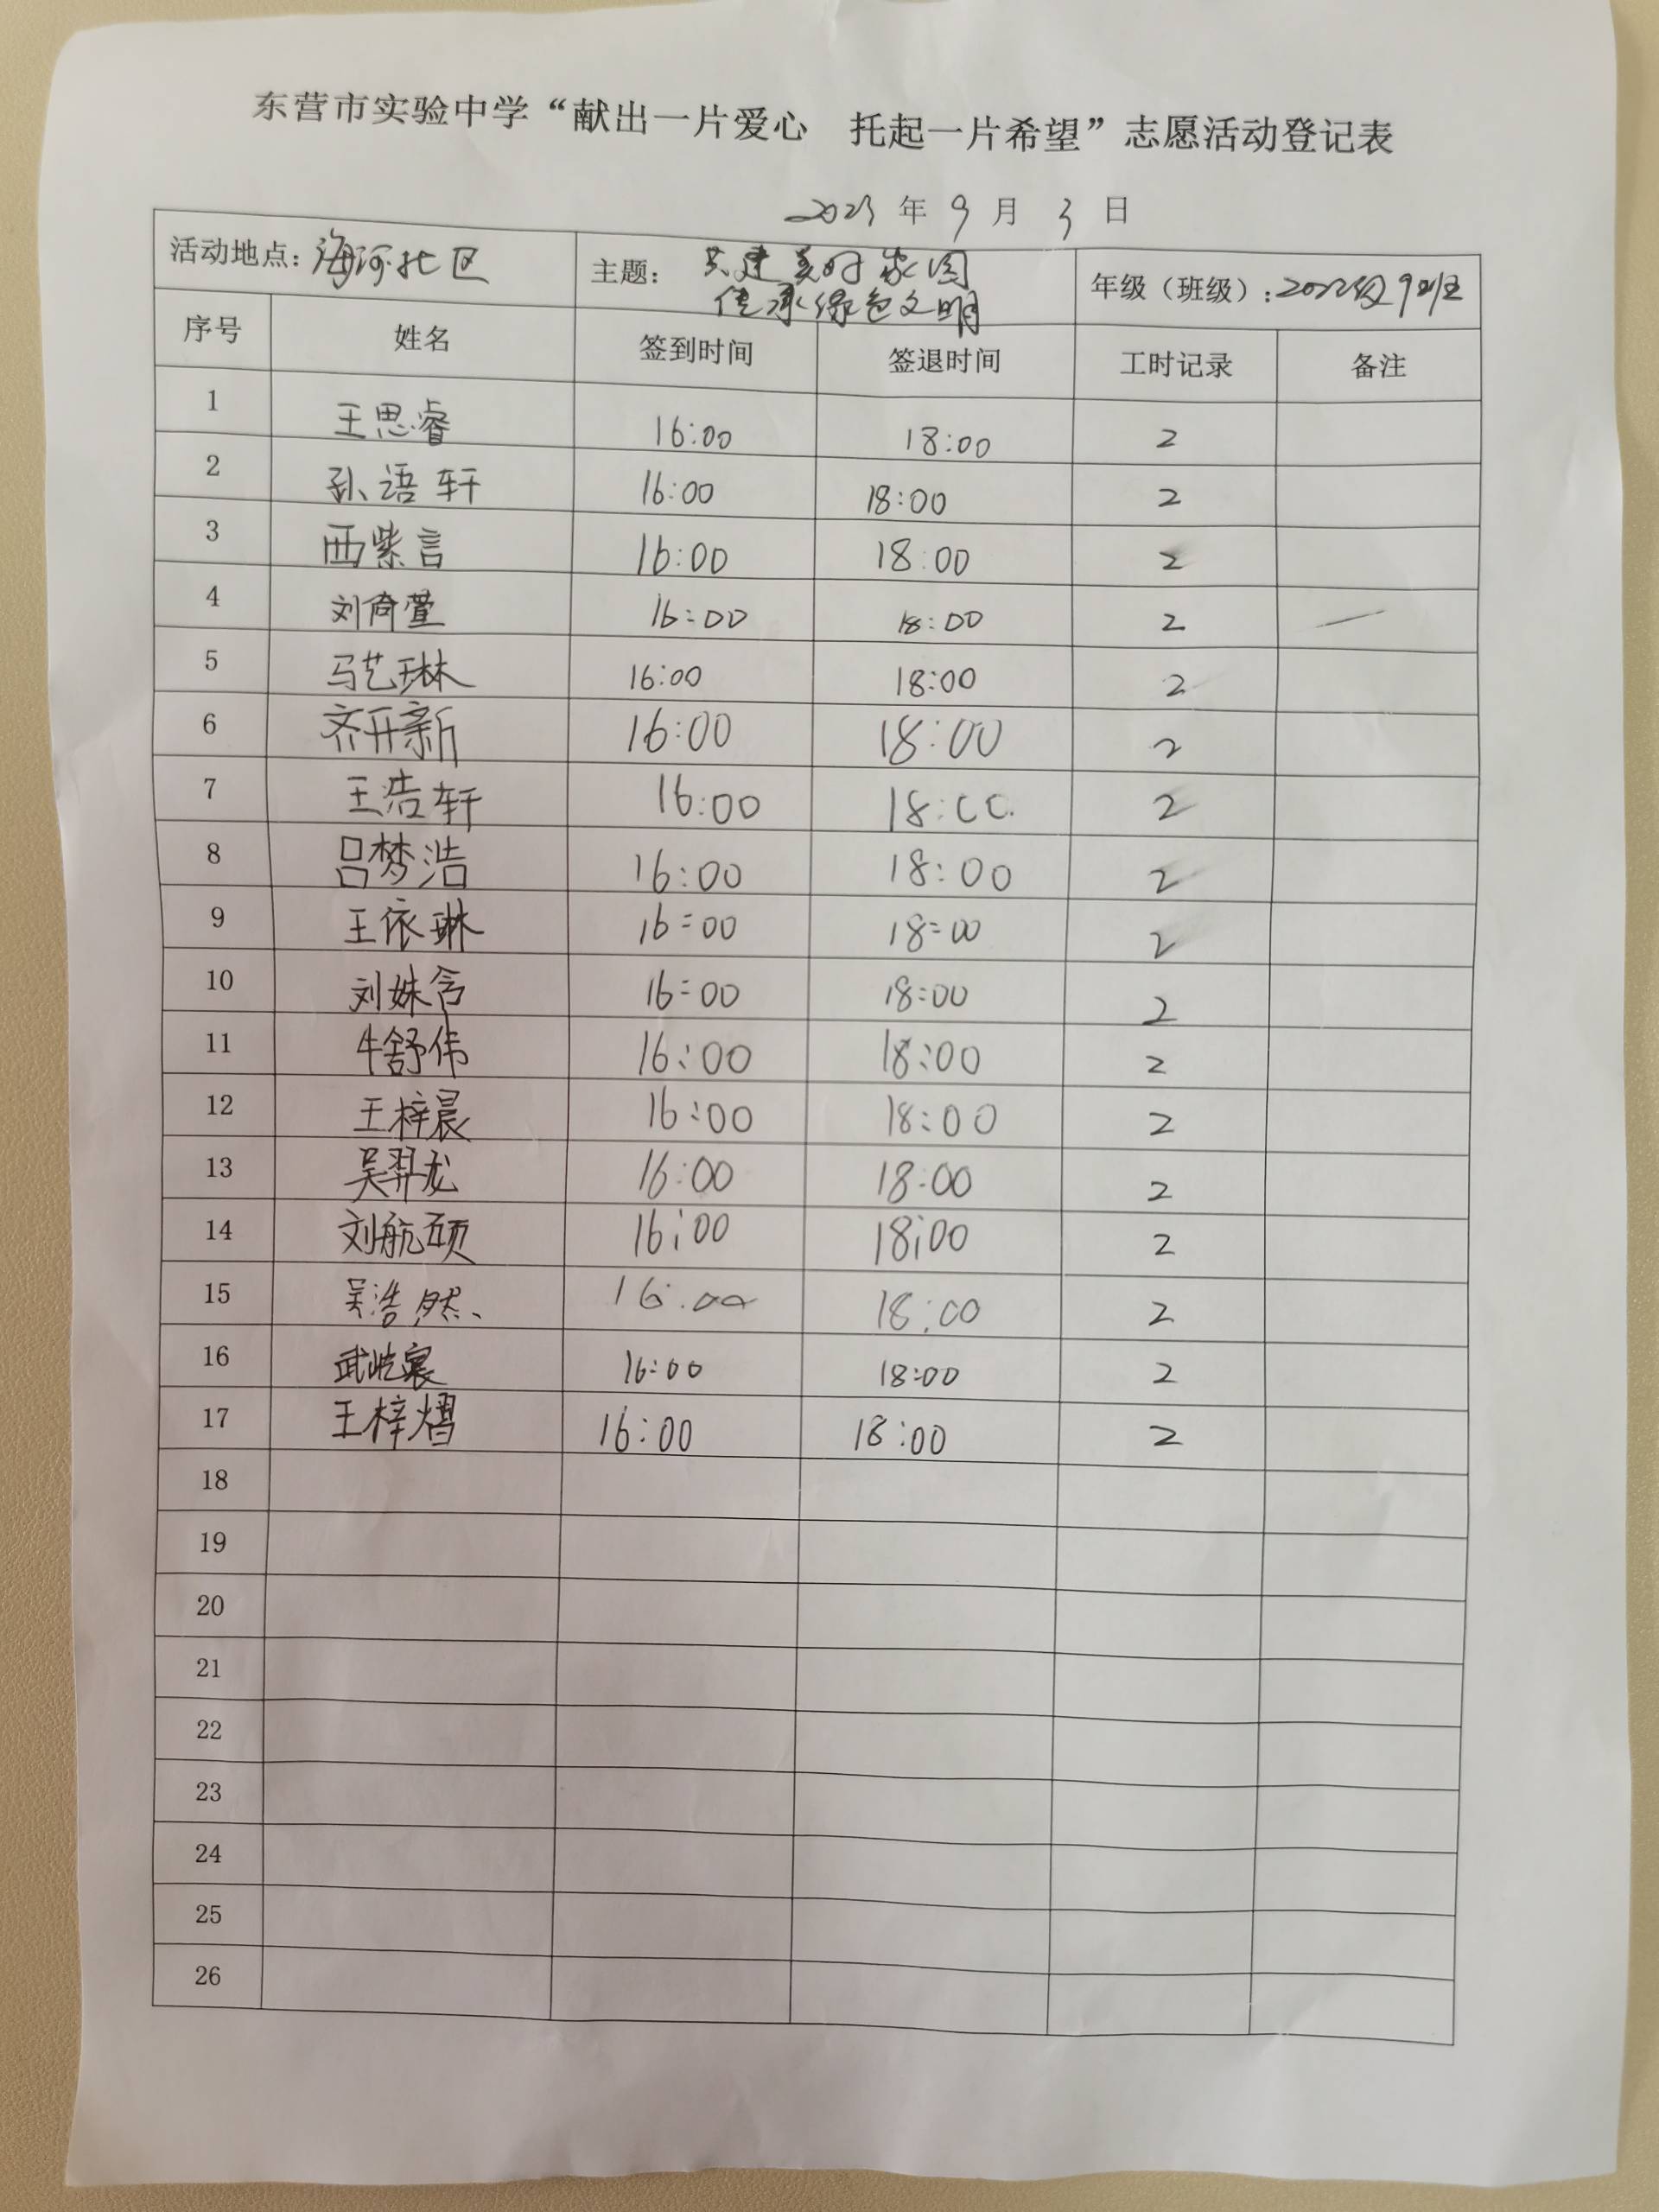 东营市实验中学“献出一片爱心 托起一片希望”志愿活动登记表
2023年 9 月 3 日
活动地点：海河北区 主题：共建美好家园 年级（班级）：2022级9班
传承绿色文明
序号 姓名 签到时间 签退时间 工时记录 备注
1 王思睿 16:00 18:00 2
2 孙语轩 16:00 18:00 2
3 西紫言 16:00 18:00 2
4 刘倚萱 16:00 18:00 2
5 马艺琳 16:00 18:00 2
6 齐开新 16:00 18:00 2
7 王浩轩 16:00 18:00 2
8 吕梦浩 16:00 18:00 2
9 王依琳 16:00 18:00 2
10 刘姝含 16:00 18:00 2
11 牛舒伟 16:00 18:00 2
12 王梓晨 16:00 18:00 2
13 吴羿龙 16:00 18:00 2
14 刘航硕 16:00 18:00 2
15 吴浩然 16:00 18:00 2
16 16:00 18:00 2
17 王梓熠 16:00 18:00 2
18
19
20
21
22
23
24
25
26